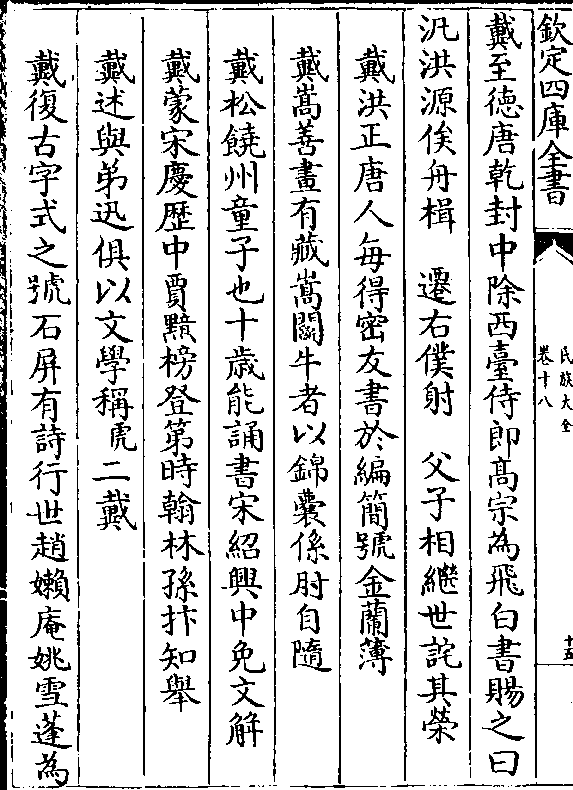 欽定四庫全書
戴至德唐乾封中除西臺侍郎高宗為飛白書賜之曰
汎洪源俟舟楫　遷右僕射　父子相繼世詫其榮
戴洪正唐人每得密友書於編簡號金蘭簿
戴嵩善畫有藏嵩鬭牛者以錦囊係肘自隨
戴松饒州童子也十歲能誦書宋紹興中免文解
戴蒙宋慶歴中賈黯榜登第時翰林孫抃知舉
戴述與弟迅俱以文學稱號二戴
戴復古字式之號石屏有詩行世趙嬾庵姚雪蓬為
民族大全
卷十八
十五